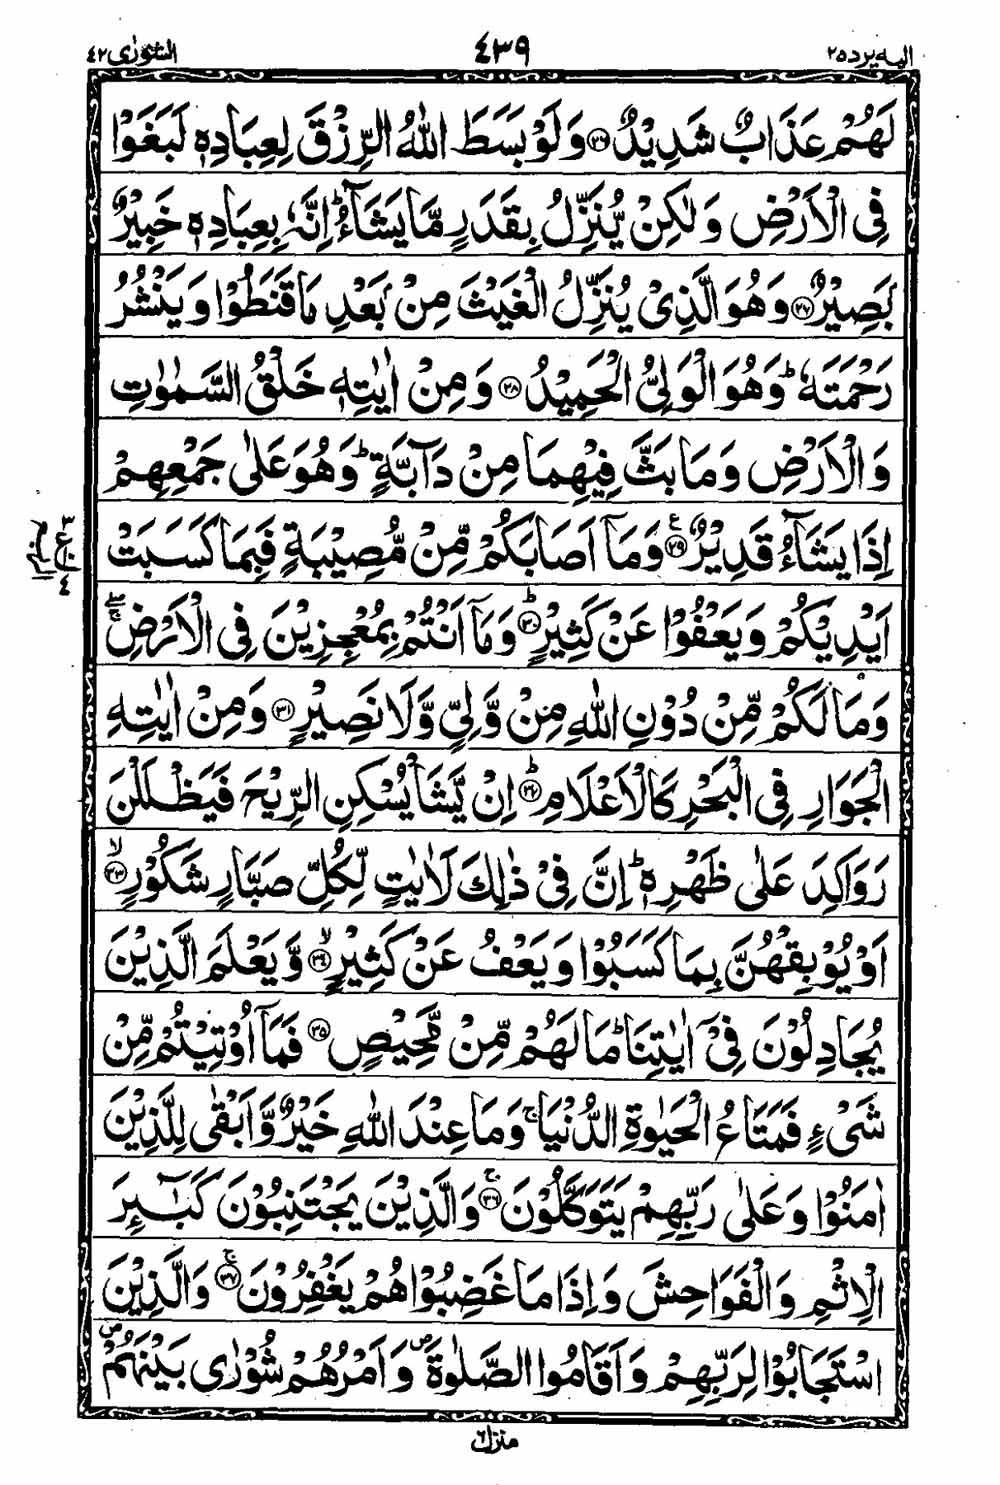 الیه یرد ٢٥
٤٣٩
الشورٰی ٤٢
لَهُمْ عَذَابٌ شَدِيْدٌ ﴿٢٦﴾ وَلَوْ بَسَطَ اللّٰهُ الرِّزْقَ لِعِبَادِهٖ لَبَغَوْا
فِى الْاَرْضِ وَلٰكِنْ يُّنَزِّلُ بِقَدَرٍ مَّا يَشَآءُ ؕ اِنَّهٗ بِعِبَادِهٖ خَبِيْرٌۢ
بَصِيْرٌ ﴿٢٧﴾ وَهُوَ الَّذِىْ يُنَزِّلُ الْغَيْثَ مِنْۢ بَعْدِ مَا قَنَطُوْا وَيَنْشُرُ
رَحْمَتَهٗ ؕ وَهُوَ الْوَلِىُّ الْحَمِيْدُ ﴿٢٨﴾ وَمِنْ اٰيٰتِهٖ خَلْقُ السَّمٰوٰتِ
وَالْاَرْضِ وَمَا بَثَّ فِيْهِمَا مِنْ دَآبَّةٍ ؕ وَهُوَ عَلٰى جَمْعِهِمْ
اِذَا يَشَآءُ قَدِيْرٌ ﴿٢٩﴾ ع وَمَاۤ اَصَابَكُمْ مِّنْ مُّصِيْبَةٍ فَبِمَا كَسَبَتْ
اَيْدِيْكُمْ وَيَعْفُوْا عَنْ كَثِيْرٍ ؕ ﴿٣٠﴾ وَمَاۤ اَنْتُمْ بِمُعْجِزِيْنَ فِى الْاَرْضِ ۖۚ
وَمَا لَكُمْ مِّنْ دُوْنِ اللّٰهِ مِنْ وَّلِىٍّ وَّلَا نَصِيْرٍ ﴿٣١﴾ وَمِنْ اٰيٰتِهِ
الْجَوَارِ فِى الْبَحْرِ كَالْاَعْلَامِ ؕ ﴿٣٢﴾ اِنْ يَّشَاْ يُسْكِنِ الرِّيْحَ فَيَظْلَلْنَ
رَوَاكِدَ عَلٰى ظَهْرِهٖ ؕ اِنَّ فِىْ ذٰلِكَ لَاٰيٰتٍ لِّكُلِّ صَبَّارٍ شَكُوْرٍ ۙ ﴿٣٣﴾
اَوْ يُوْبِقْهُنَّ بِمَا كَسَبُوْا وَيَعْفُ عَنْ كَثِيْرٍ ۙ ﴿٣٤﴾ وَّيَعْلَمَ الَّذِيْنَ
يُجَادِلُوْنَ فِىْۤ اٰيٰتِنَا ؕ مَا لَهُمْ مِّنْ مَّحِيْصٍ ﴿٣٥﴾ فَمَاۤ اُوْتِيْتُمْ مِّنْ
شَىْءٍ فَمَتَاعُ الْحَيٰوةِ الدُّنْيَا ۚ وَمَا عِنْدَ اللّٰهِ خَيْرٌ وَّاَبْقٰى لِلَّذِيْنَ
اٰمَنُوْا وَعَلٰى رَبِّهِمْ يَتَوَكَّلُوْنَ ۚ ﴿٣٦﴾ وَالَّذِيْنَ يَجْتَنِبُوْنَ كَبٰٓئِرَ
الْاِثْمِ وَالْفَوَاحِشَ وَاِذَا مَا غَضِبُوْا هُمْ يَغْفِرُوْنَ ۚ ﴿٣٧﴾ وَالَّذِيْنَ
اسْتَجَابُوْا لِرَبِّهِمْ وَاَقَامُوا الصَّلٰوةَ ۪ وَاَمْرُهُمْ شُوْرٰى بَيْنَهُمْ ۪
منزل ٦